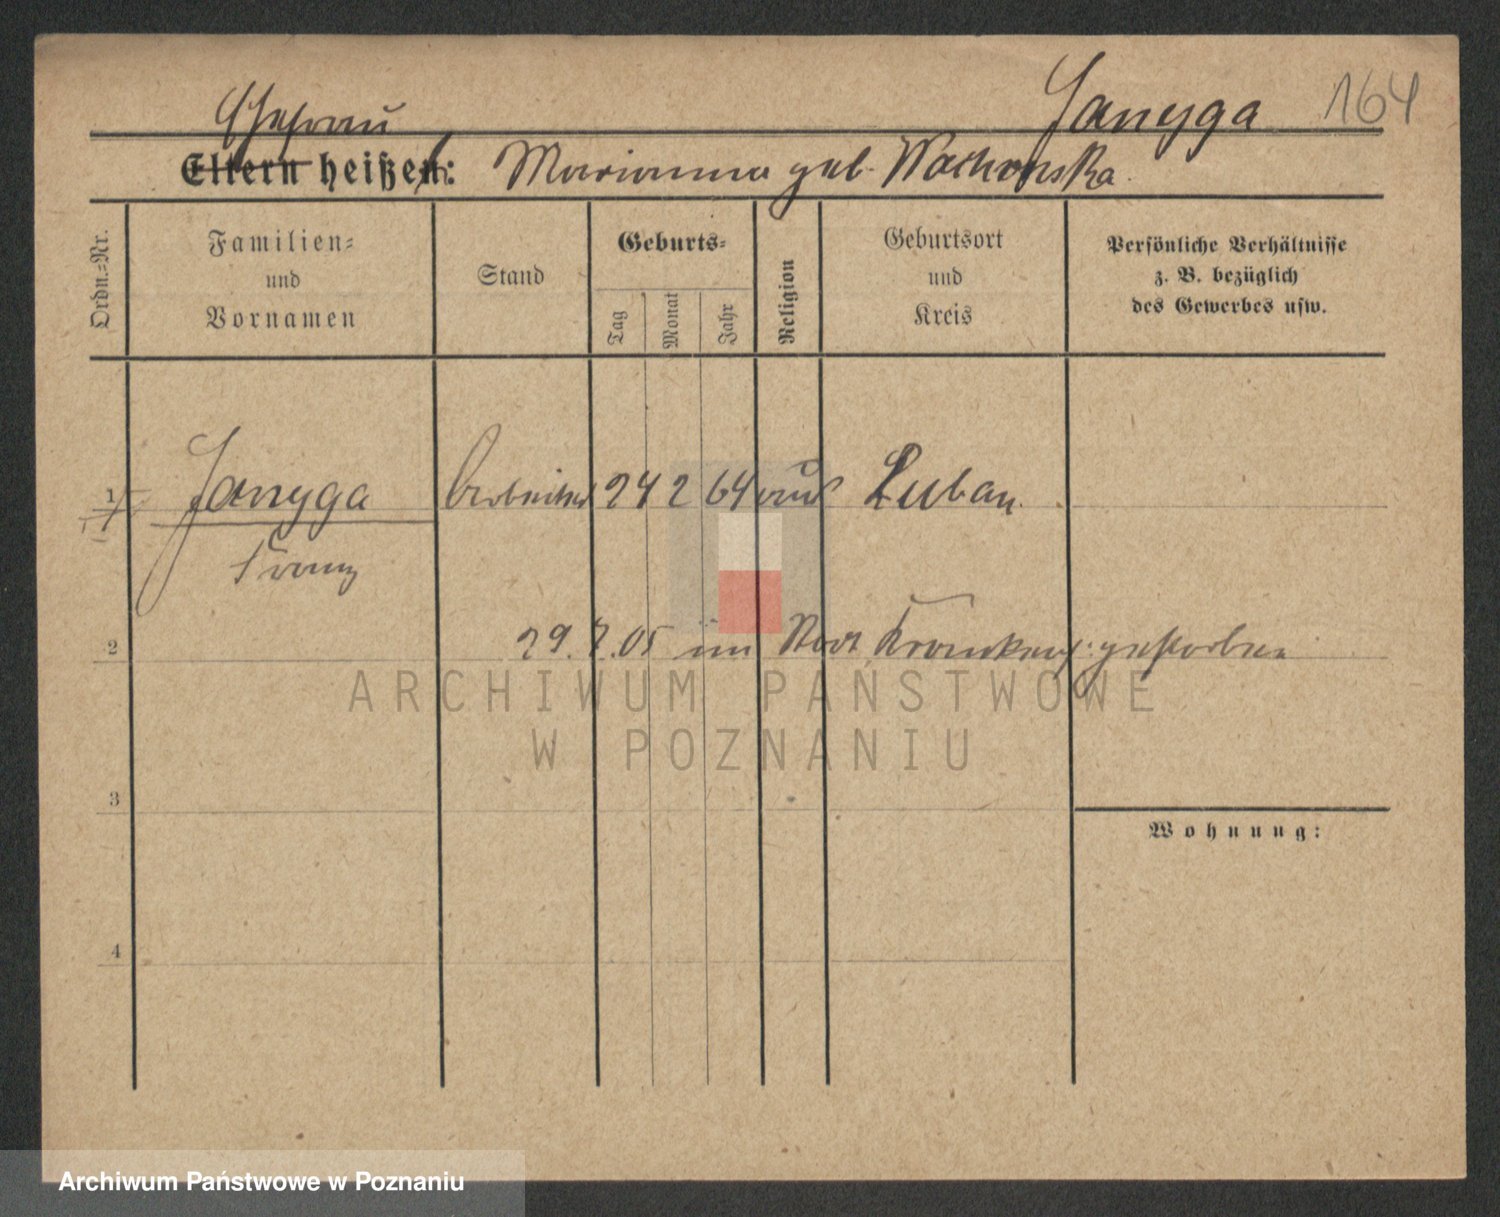 Ehefrau
Jangga 164
Eltern heißen: Marianna geb.
Ordn.=Nr.
Familien=
und
Vornamen
Stand
Geburts=
Tag
Monat
Jahr
Religion
Geburtsort
und
Kreis
Persönliche Verhältnisse
z. B. bezüglich
des Gewerbes usw.
1 Jangga Arbeiter 24 2 64 Luban
Franz
2 29. 7. 05 im Krankenh. gestorben
ARCHIWUM PAŃSTWOWE
W POZNANIU
3
Wohnung:
4
Archiwum Państwowe w Poznaniu